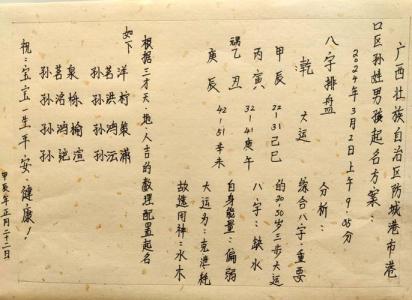 广西壮族自治区防城港市港
口区孙姓男孩起名方案:
2024年3月2日上午9.05分
八字排盘
乾 大运
甲辰 22-31己巳
丙寅 32-41庚午
乙丑
庚辰 42-51辛未
分析:
综合八字,重要
的20-50岁三步大运
八字:缺水
自身能量:偏弱
大运为:克泄耗
故适用神:水木
根据三才天.地.人吉的数理配置起名
如下
孙茗洋
孙茗柠
孙鸿
孙潇
孙茗泉
孙洺栋
孙鸿榆
孙渲
祝:宝宝一生平安健康!
甲辰年正月二十二日